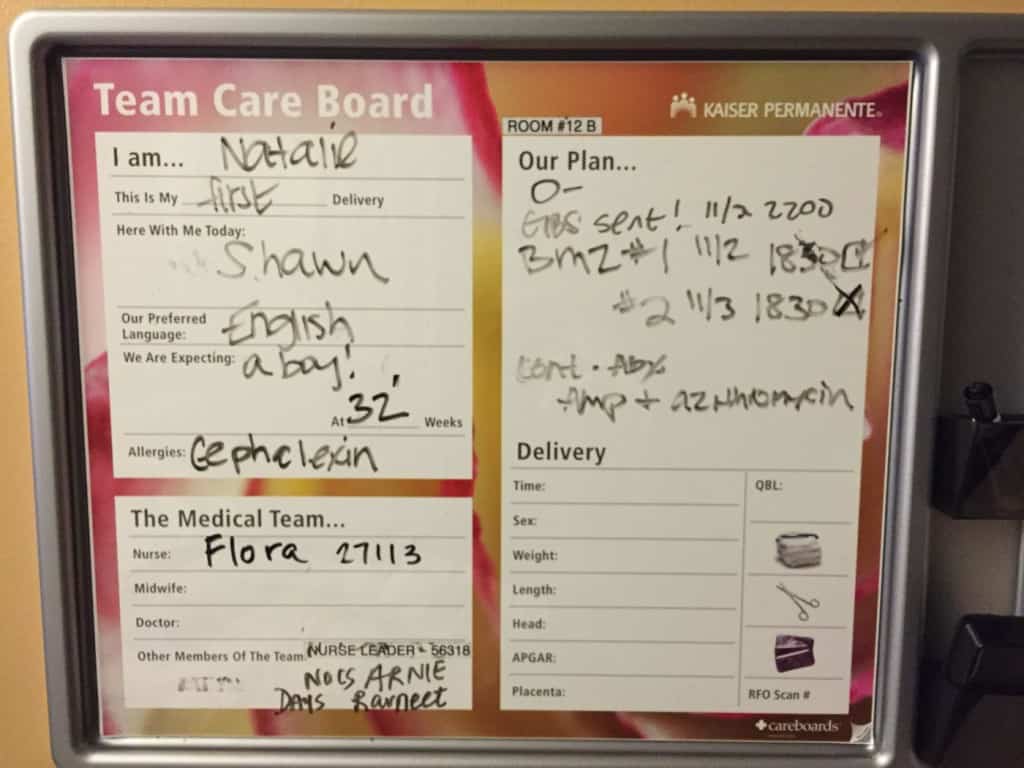 Team Care Board
KAISER PERMANENTE®
I am... Natalie
This Is My first Delivery
Here With Me Today:
Shawn
Our Preferred
Language: English
We Are Expecting: a boy!
At 32 Weeks
Allergies: Cephalexin
The Medical Team...
Nurse: Flora 27113
Midwife:
Doctor:
Other Members Of The Team: NURSE LEADER - 56318
NOCS ARNIE
DAYS Ravneet
ROOM #12 B
Our Plan...
O-
GBS sent! 11/2 2200
BMZ #1 11/2 1830
#2 11/3 1830
cont. Abx
Amp + azithromycin
Delivery
Time:
Sex:
Weight:
Length:
Head:
APGAR:
Placenta:
QBL:
RFO Scan #
careboards